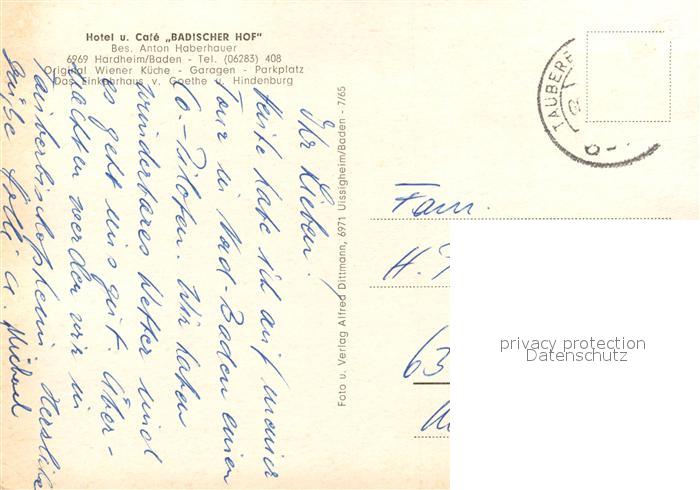 Hotel u. Café „BADISCHER HOF"
Bes. Anton Haberhauer
6969 Hardheim/Baden - Tel. (06283) 408
Original Wiener Küche - Garagen - Parkplatz
Das Einkehrhaus v. Goethe u. Hindenburg
Ihr Lieben!
Heute habe ich auf meiner
Tour in Nord-Baden einen
Co.-Piloten. Wir haben
wunderbares Wetter und
es geht uns gut. Über-
nachten werden wir in
Tauberbischofsheim. Herzliche
Grüße u. Michael
Foto u. Verlag Alfred Dittmann, 6971 Uissigheim/Baden - 7/65
TAUBERB
Fam.
H.
63
privacy protection
Datenschutz